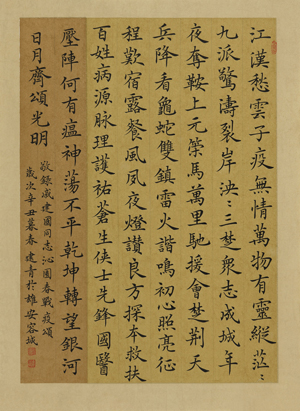 江漢愁雲子疫無情萬物有靈縱茫〻
九派驚濤裂岸泱〻三楚衆志成城年
夜奪鞍上元策馬萬里馳援會楚荆天
兵降看龜蛇雙鎮雷火諧鳴初心照亮征
程歎宿露餐風夙夜燈讚良方探本救扶
百姓病源脉理護祐蒼生俠士先鋒國醫
壓陣何有瘟神蕩不平乾坤轉望銀河
日月齊頌光明
敬錄咸建國同志沁園春戰疫頌
歲次辛丑暮春建青於雄安容城